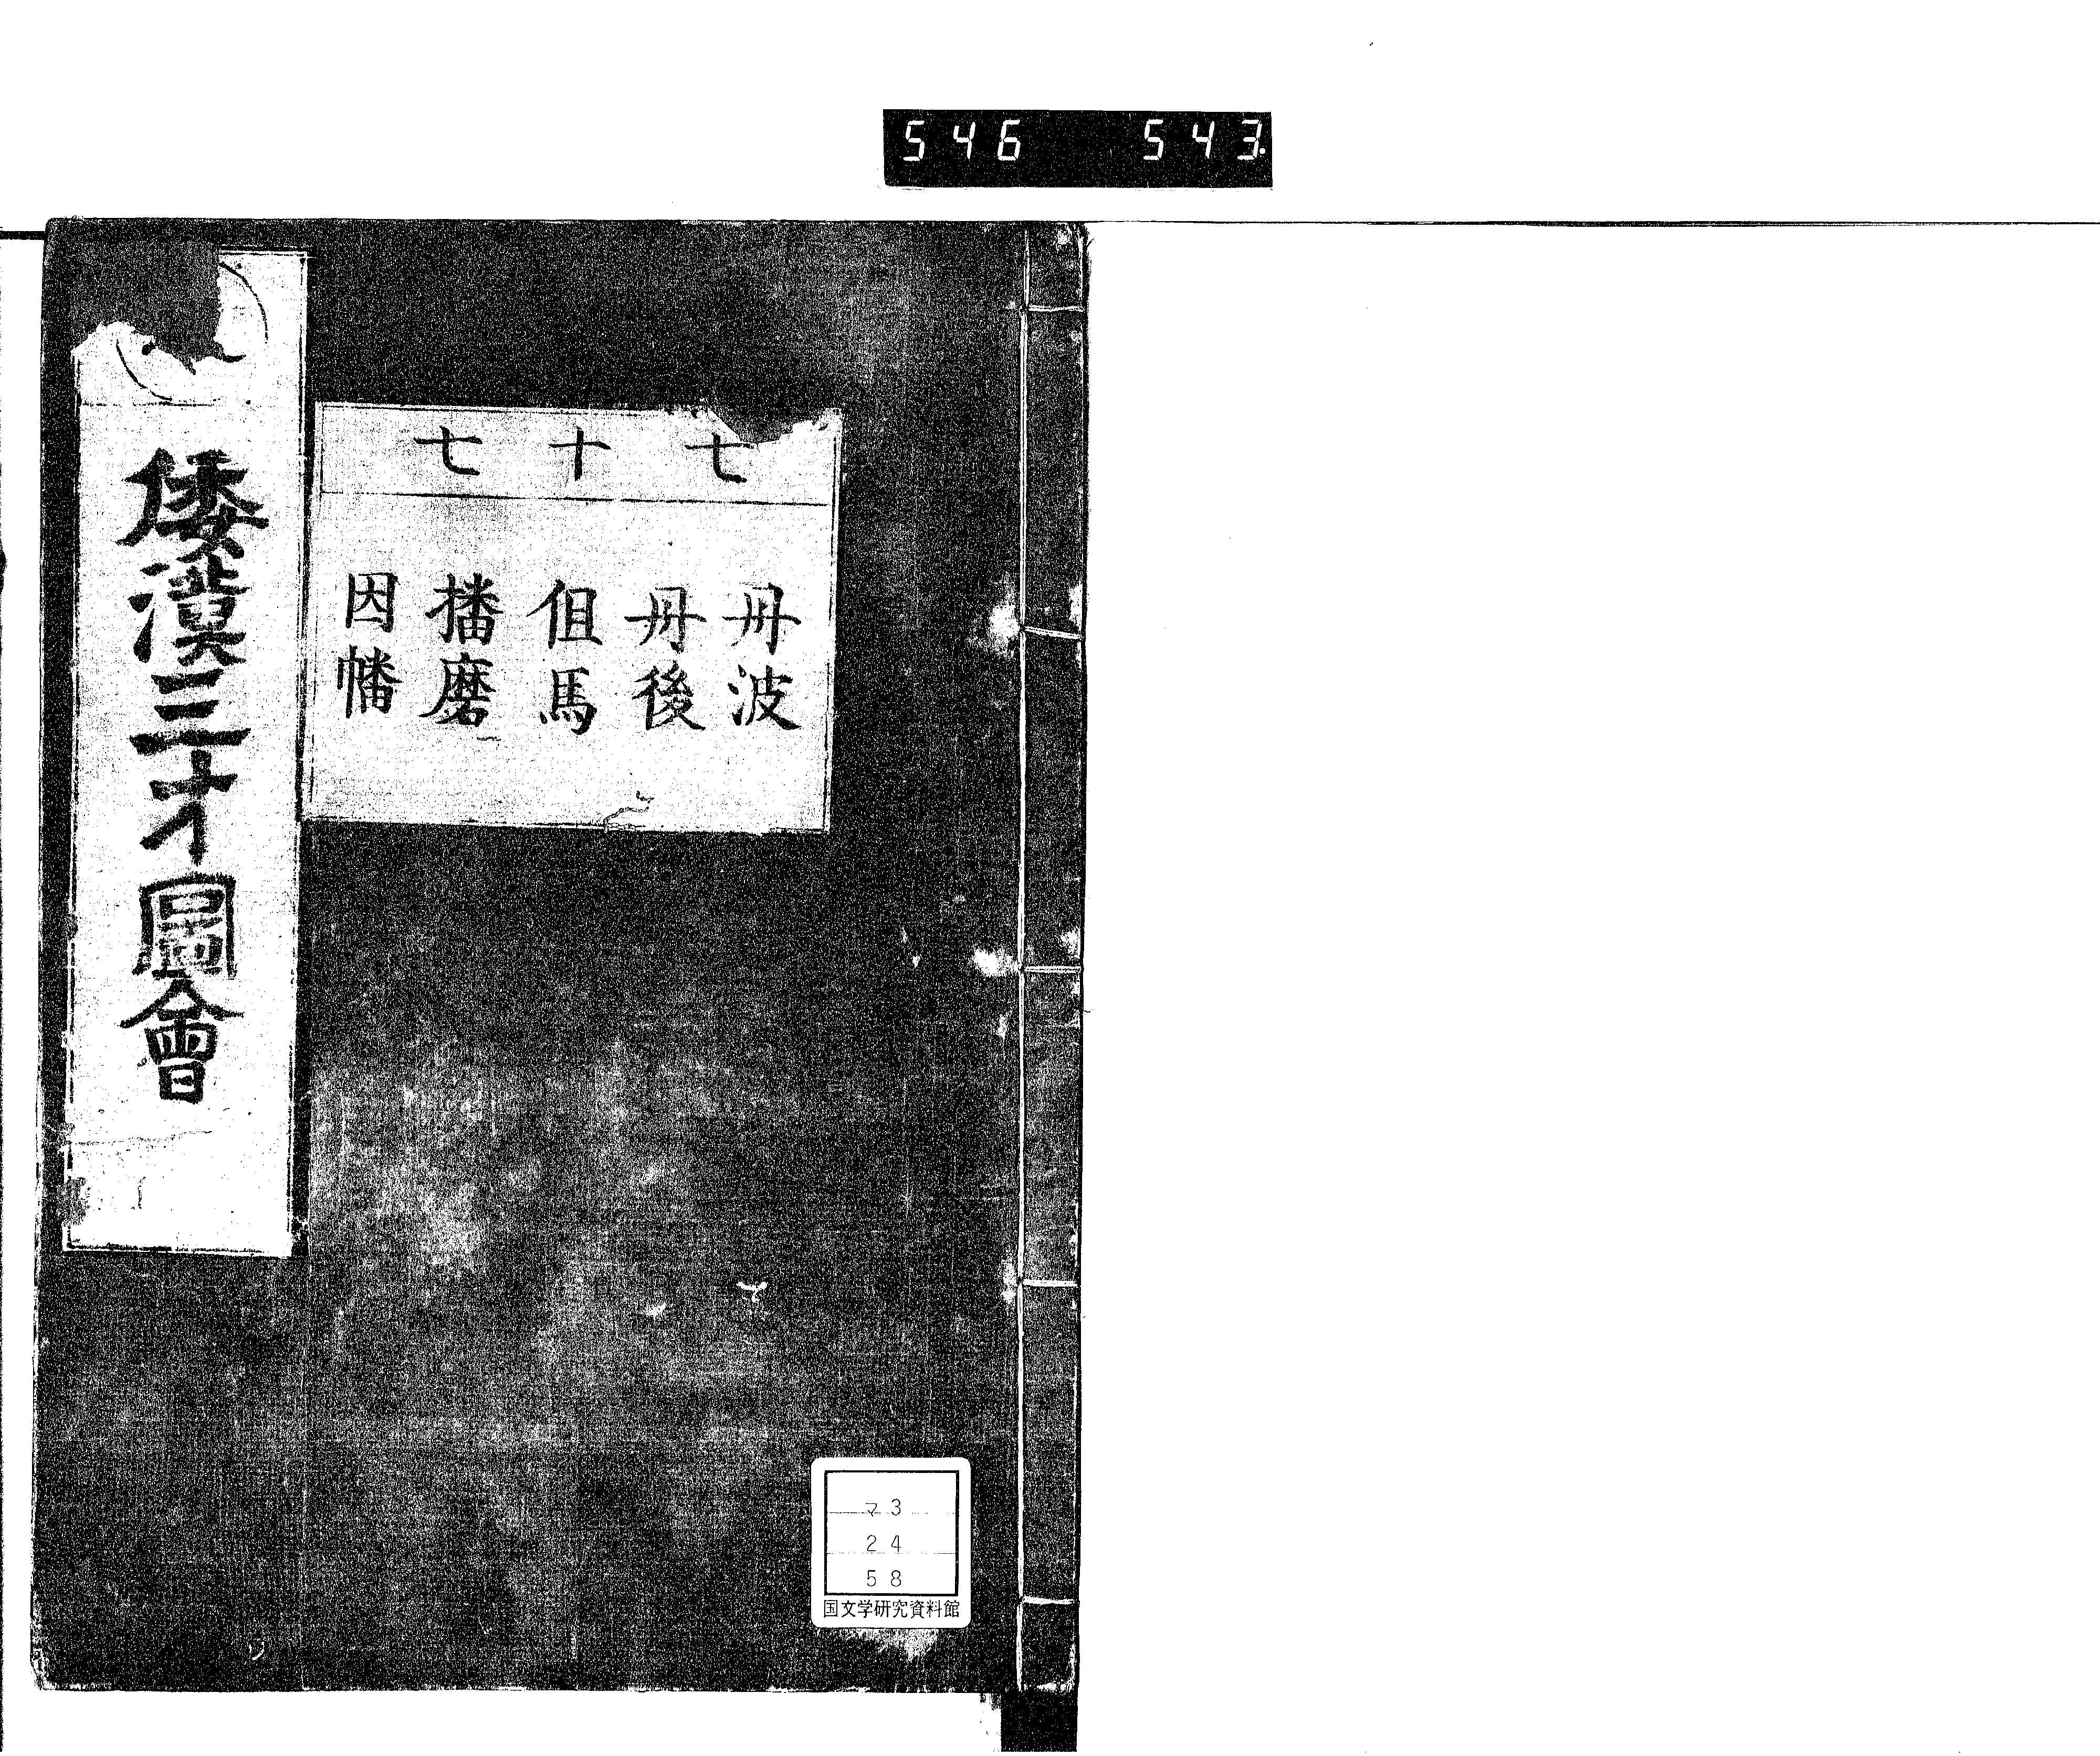 546 543.
七十七
丹波
丹後
但馬
播磨
因幡
倭漢三才圖會
マ3
24
58
国文学研究資料館